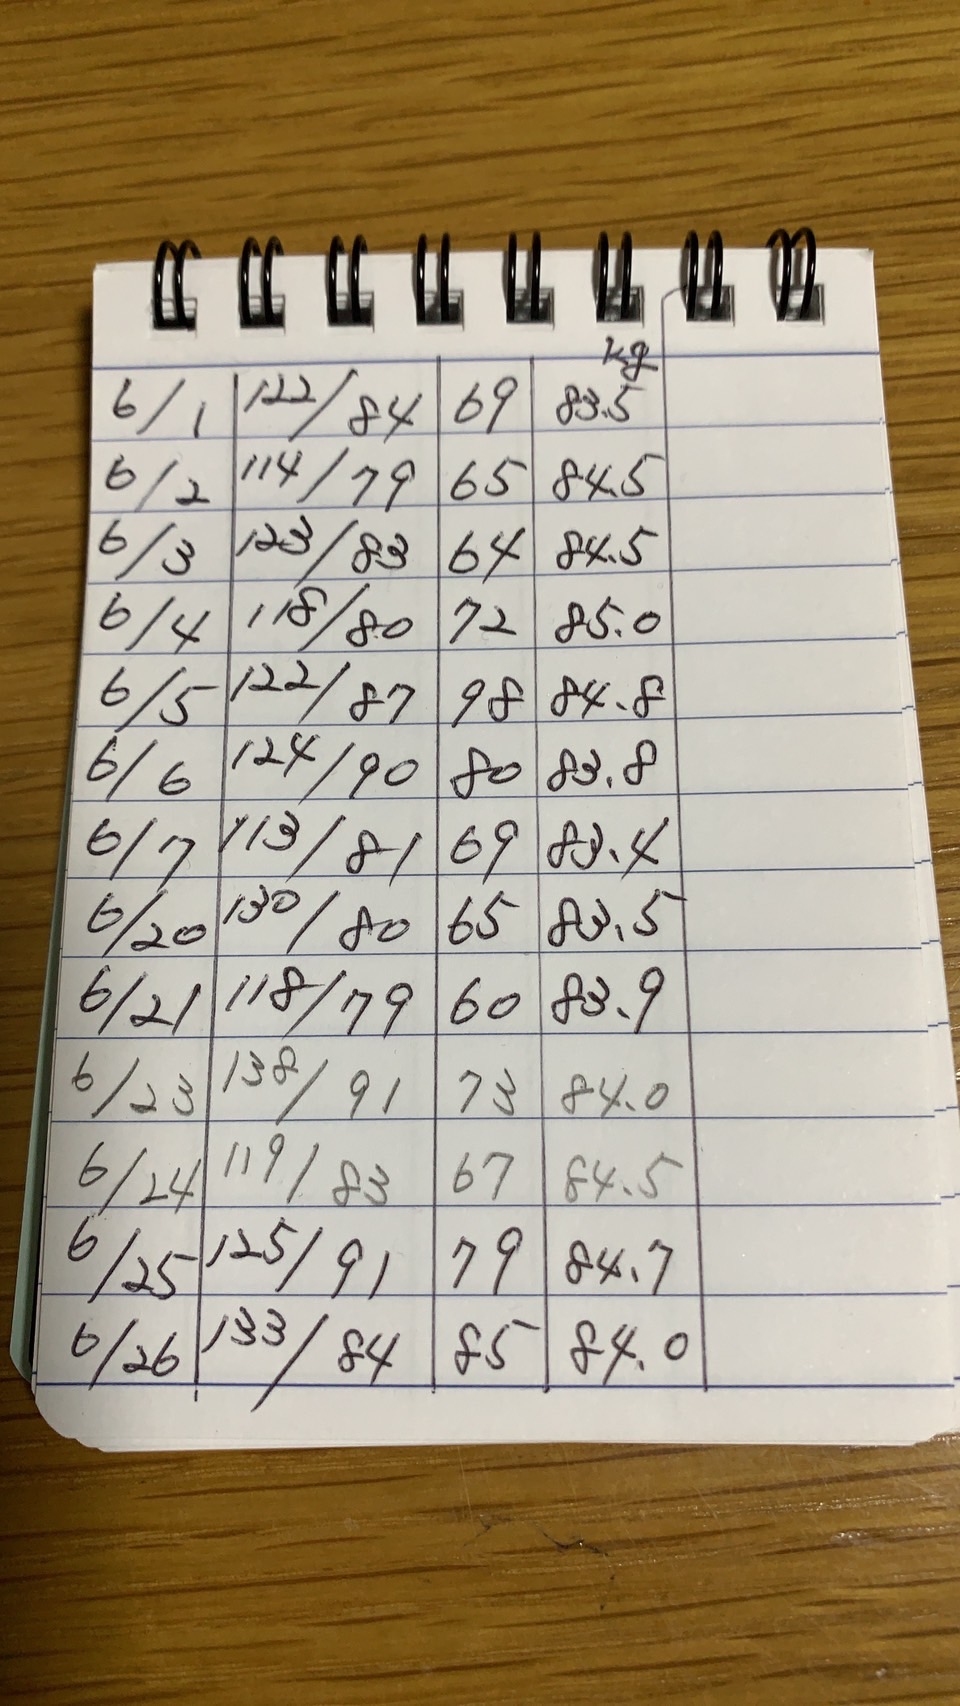 kg
6/1 122/84 69 83.5
6/2 114/79 65 84.5
6/3 123/83 64 84.5
6/4 118/80 72 85.0
6/5 122/87 98 84.8
6/6 124/90 80 83.8
6/7 113/81 69 83.4
6/20 130/80 65 83.5
6/21 118/79 60 83.9
6/23 138/91 73 84.0
6/24 119/83 67 84.5
6/25 125/91 79 84.7
6/26 133/84 85 84.0